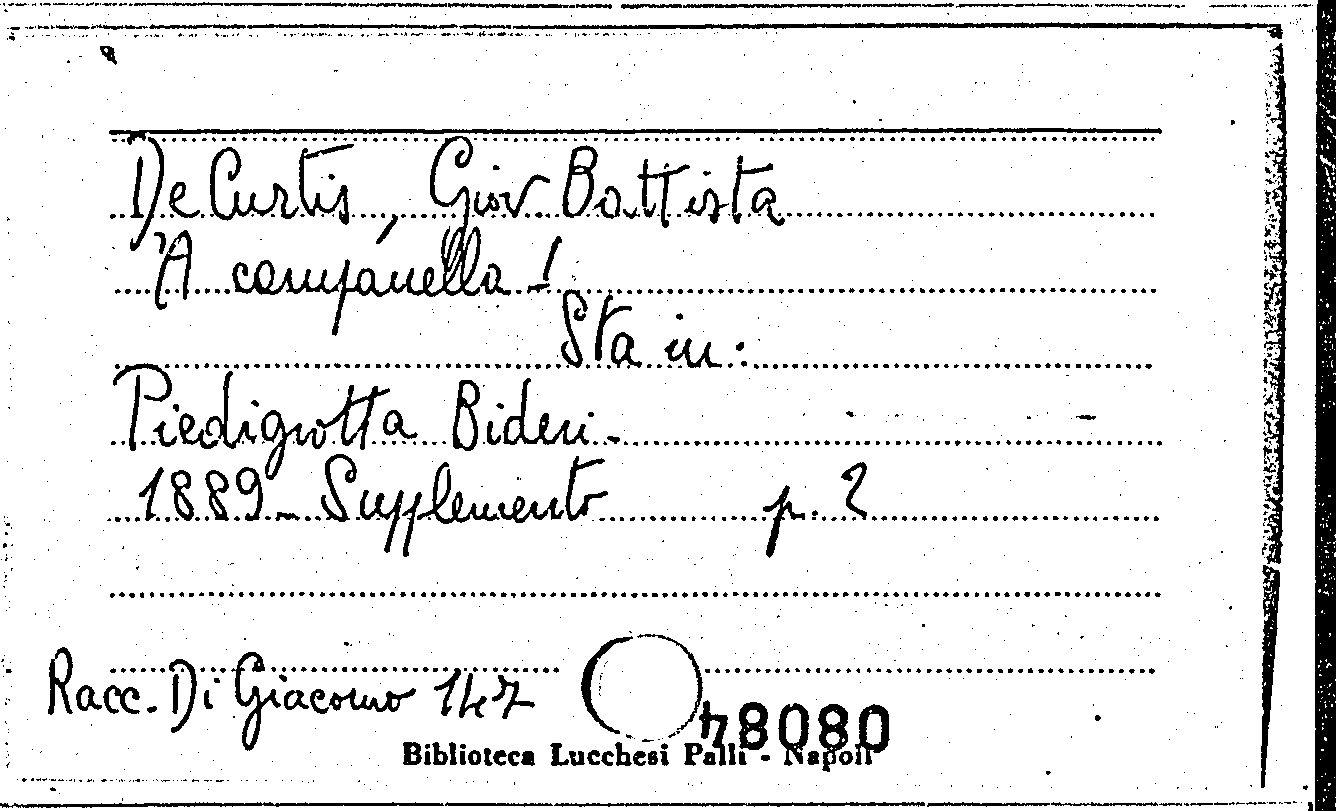 De Curtis, Giov. Battista
'A campanella!
Sta in:
Piedigrotta Bideri -
1889 - Supplemento p. 2
Racc. Di Giacomo 147
48080
Biblioteca Lucchesi Palli - Napoli